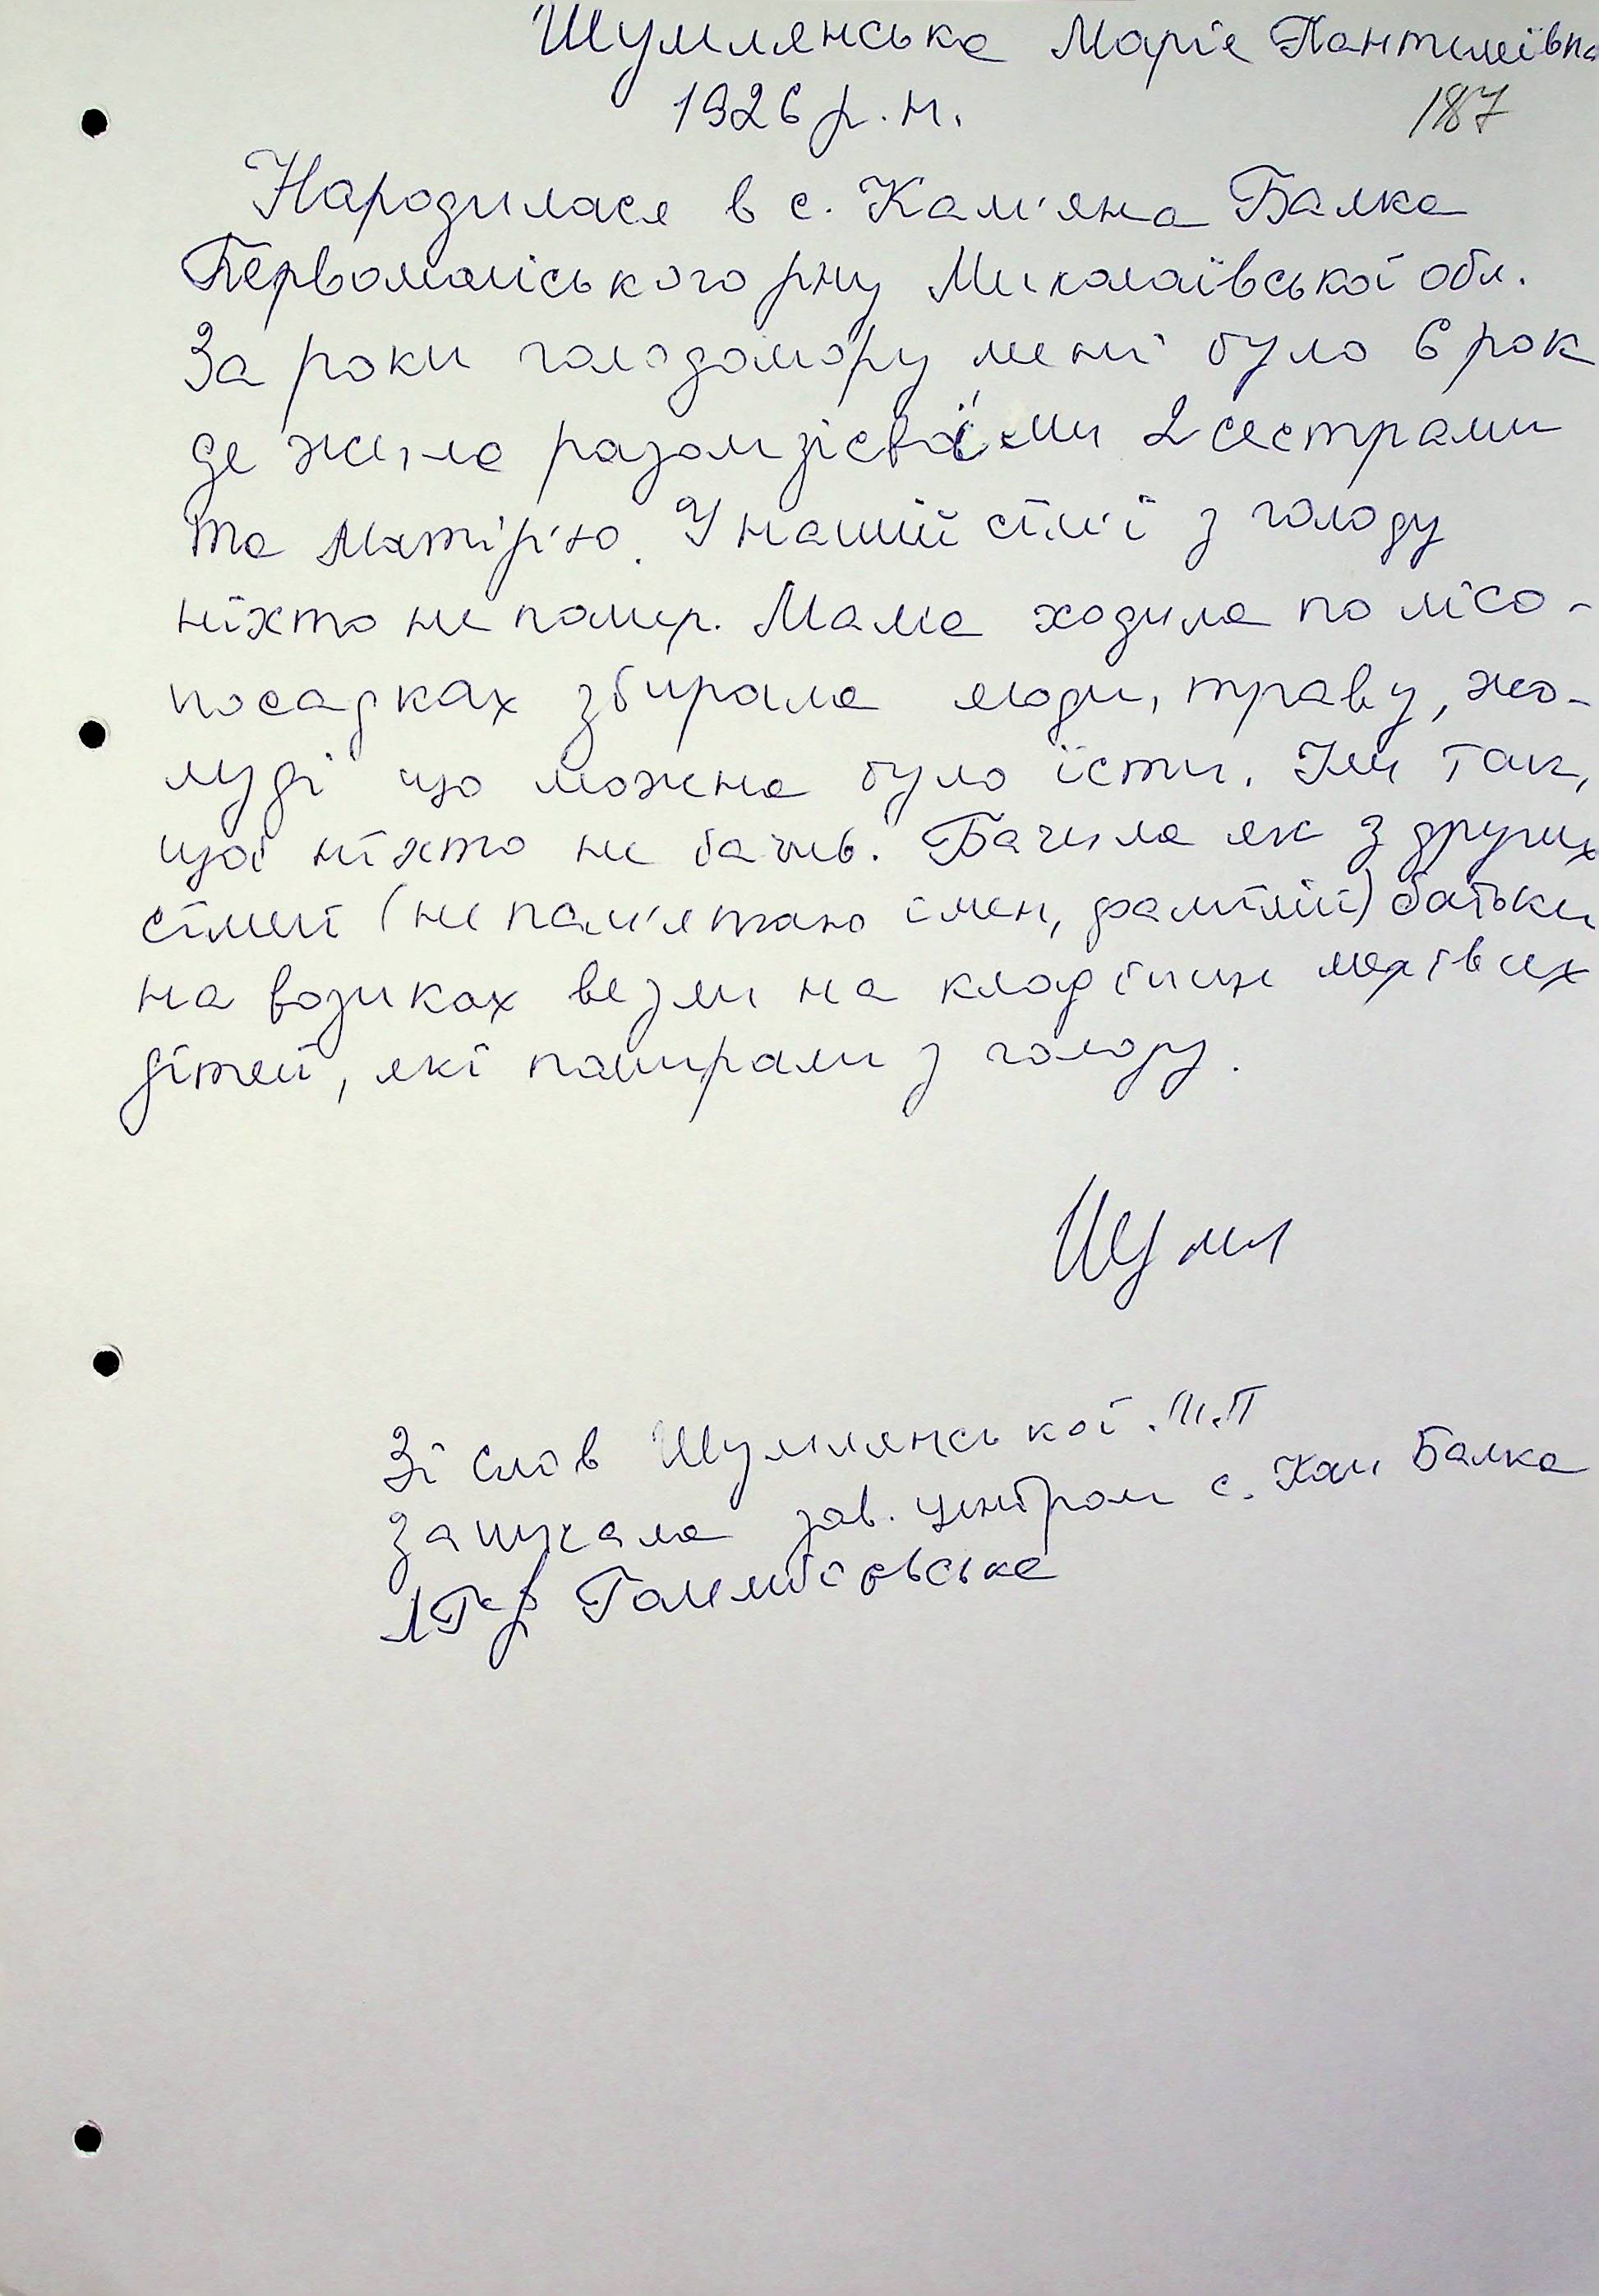 Шумлянська Марія Пантиліївна
1926 р. н.
187
Народилася в с. Кам'яна Балка
Первомайського рну Миколаївської обл.
За роки голодомору мені було 6 рок
де жила разом зі своїми 2 сестрами
та матір'ю. У нашій сім'ї з голоду
ніхто не помер. Мама ходила по лісо-
посадках збирала ягоди, траву, жо-
луді що можна було їсти. Їли так,
щоб ніхто не бачив. Бачила як з других
сімей (не пам'ятаю імен, фамілій) батьки
на возиках везли на кладбище мертвих
дітей, які помирали з голоду.
Шумл
Зі слов Шумлянської М.П
записала зав. центром с. Кам Балка